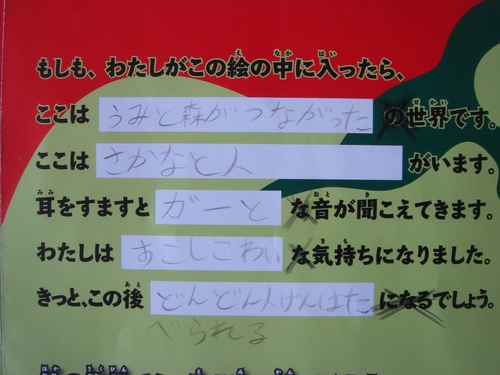 もしも、わたしがこの絵の中に入ったら、
ここは うみと森がつながった の世界です。
ここは さかなと人 がいます。
耳をすますと ガーと な音が聞こえてきます。
わたしは すこしこわい な気持ちになりました。
きっと、この後 どんどん人げんはた になるでしょう。
べられる